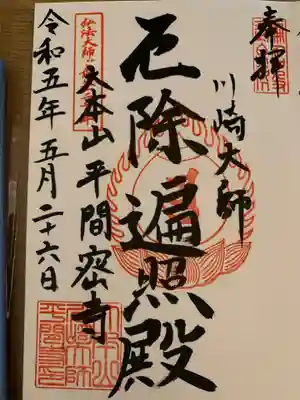 奉拝
川崎大師
厄除遍照殿
大本山 平間密寺
令和五年五月二十六日